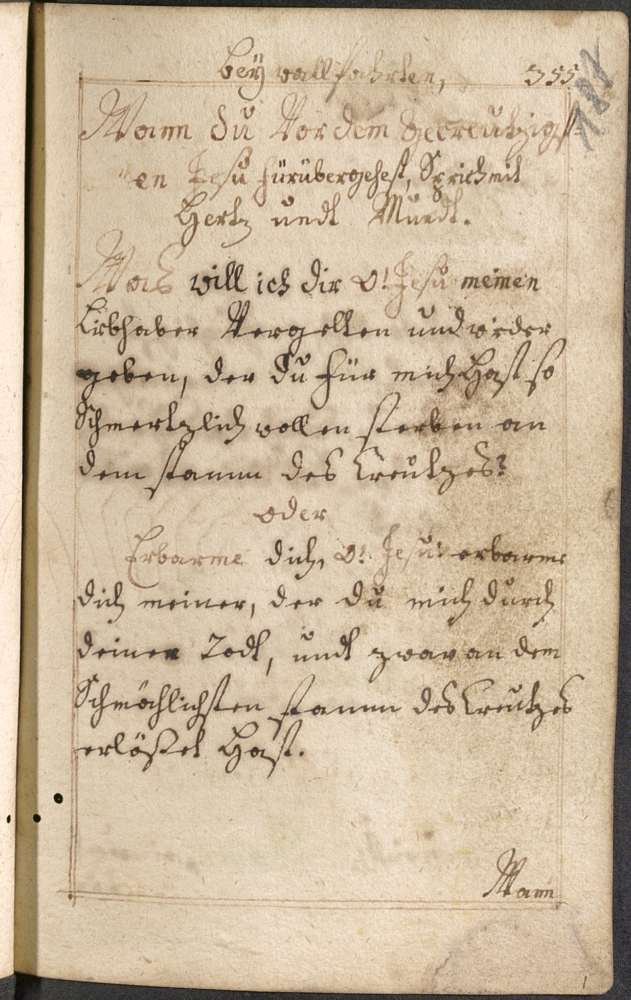 bey wallfahrten, 355
188
Wann du Vor dem gecreutzigst-
en Jesu fürübergehest, Sprich mit
Hertz undt Mundt.
Was will ich dir O! Jesu meinen
Liebhaber Vergelten und wider
geben, der du für mich Hast so
Schmertzlich wollen sterben an
dem stamm des Creutzes?
oder
Erbarme dich, O! Jesu! erbarme
dich meiner, der du mich durch
deinen Todt, undt zwar an dem
Schmächlichsten stamm des Creutzes
erlößet Hast.
Wann